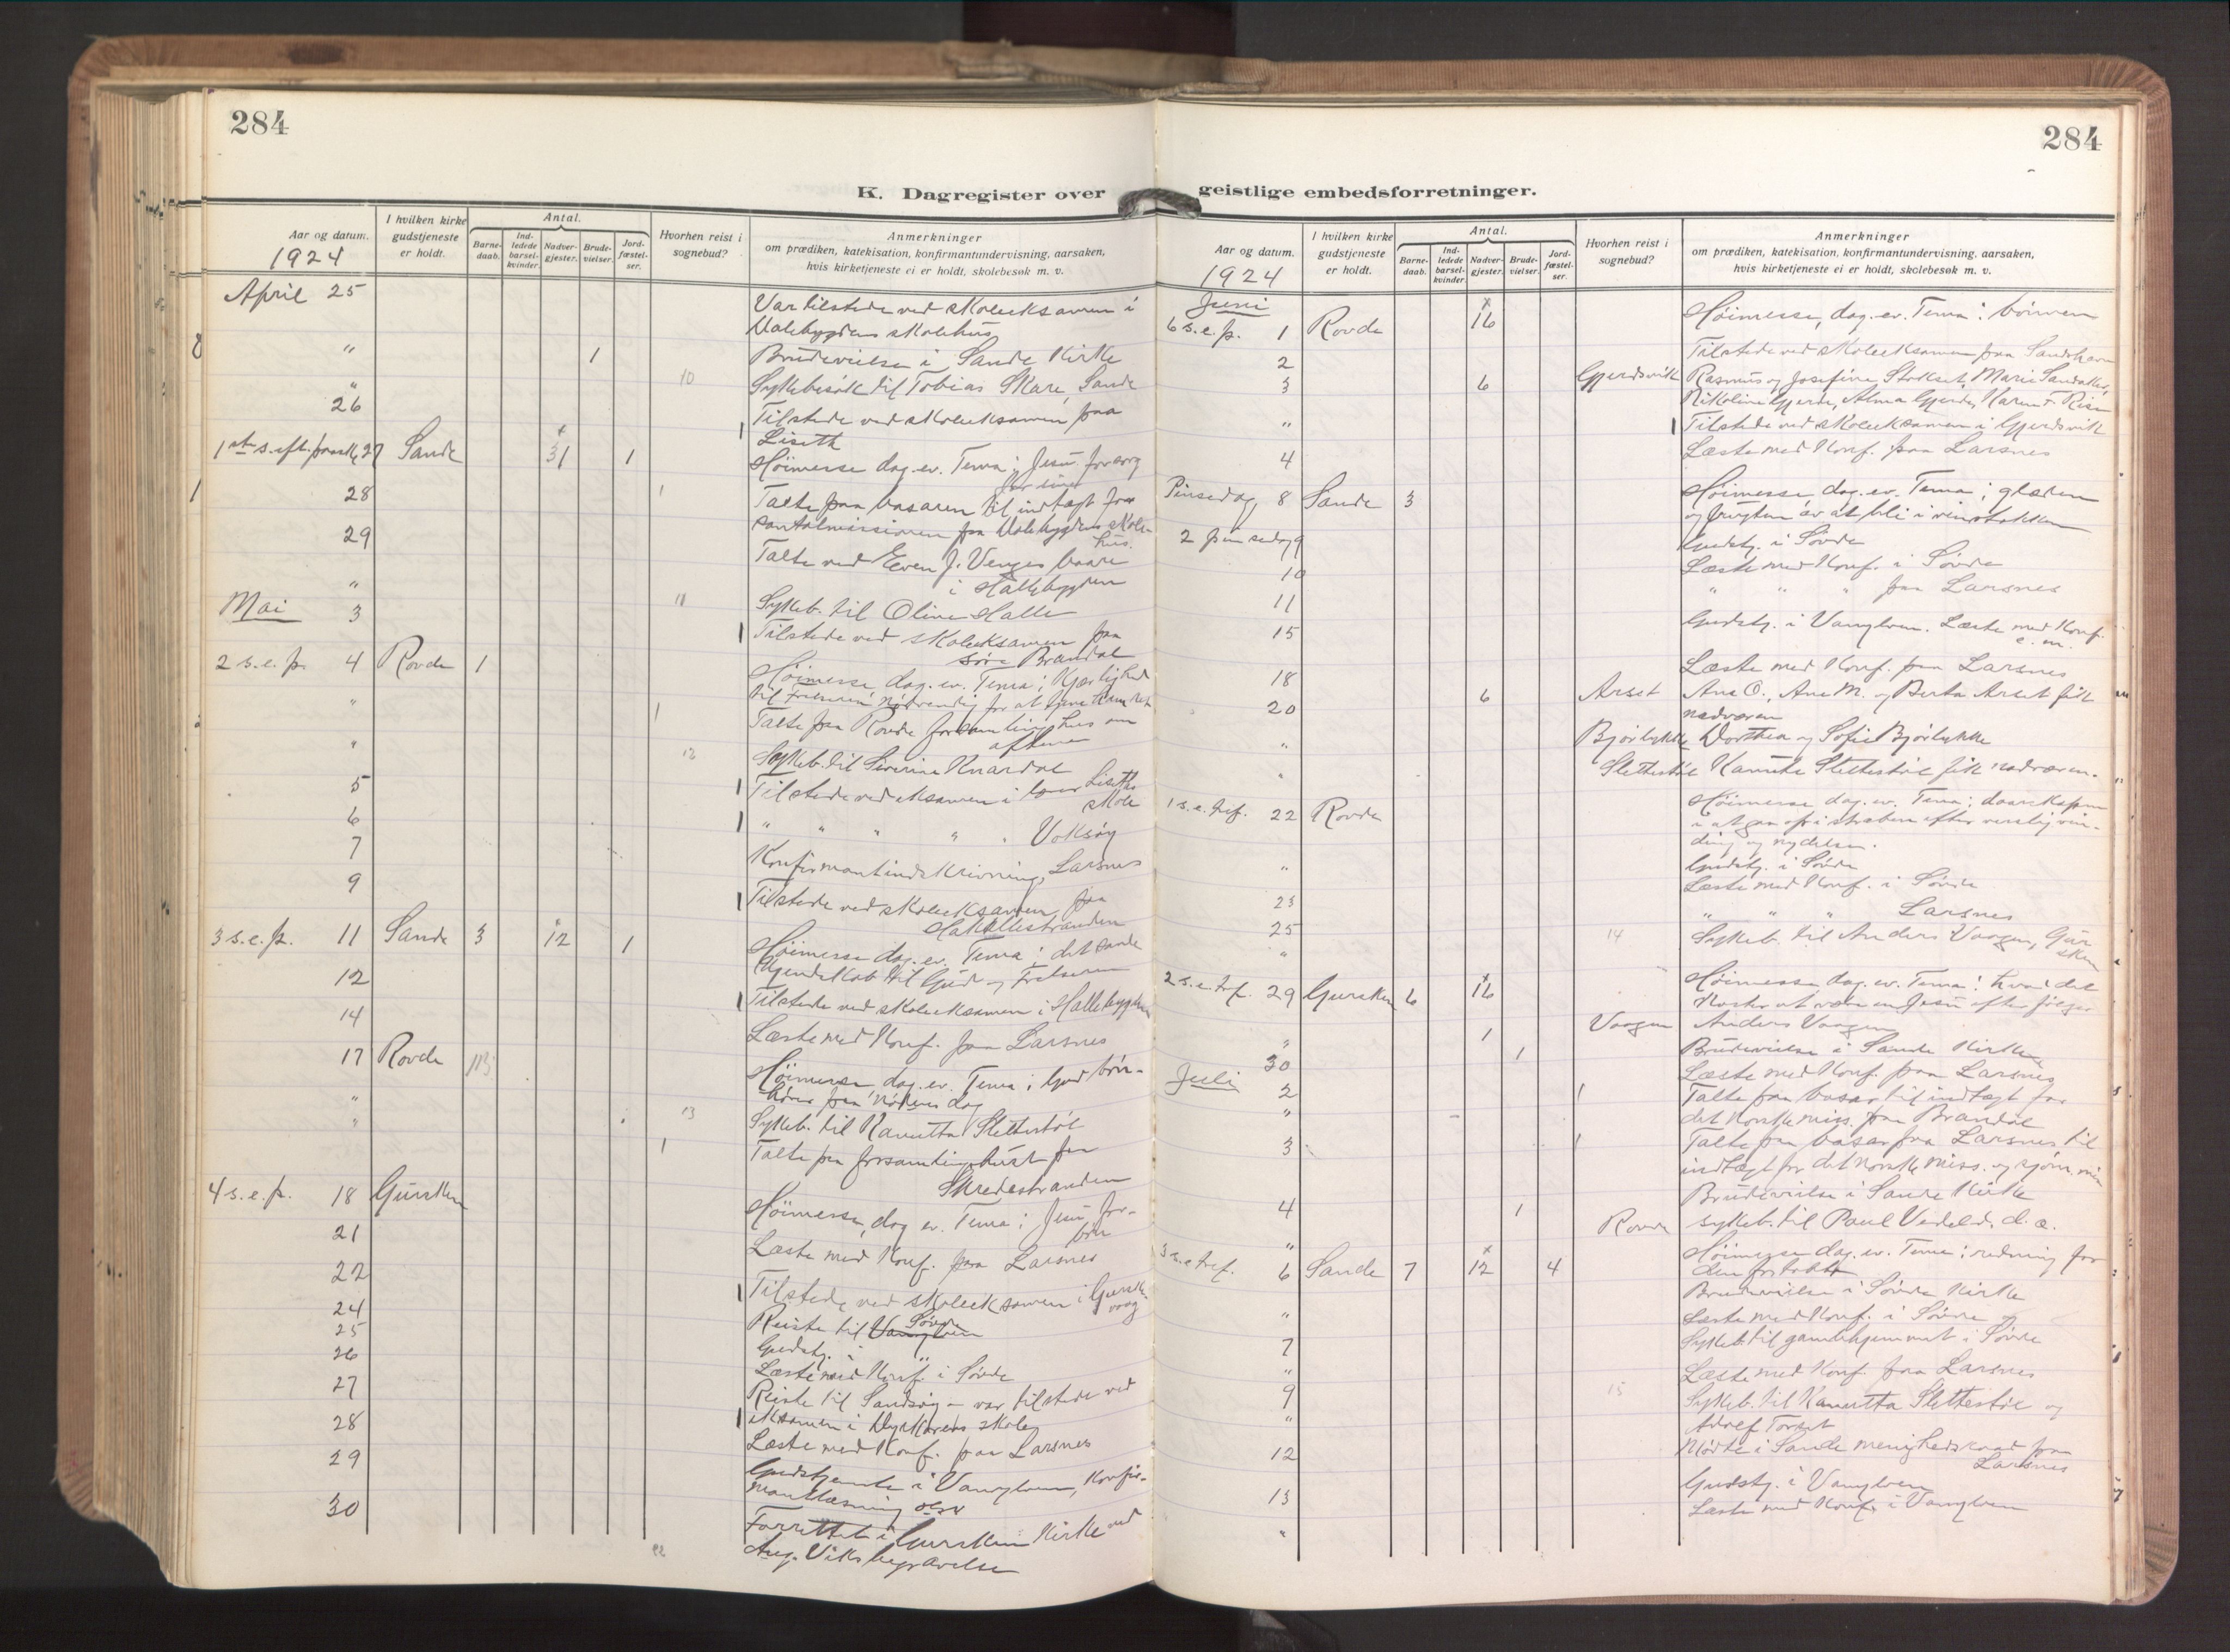 284
K. Dagregister over
Aar og datum.
1924
I hvilken kirke gudstjeneste er holdt.
Antal.
Barne-daab.
Ind-ledede barsel-kvinder.
Nadver-gjester.
Brude-vielser.
Jord-fæstel-ser.
Hvorhen reist i sognebud?
Anmerkninger
om prædiken, katekisation, konfirmantundervisning, aarsaken,
hvis kirketjeneste ei er holdt, skolebesøk m. v.
April 25 Var tilstede ved skoleeksamen i
skolehus
" 1 Brudevielse i Sande Kirke
" 10 Sykebesøk til Tobias Skare, Sande
26 Tilstede ved skoleeksamen paa
Liseth
1ste s. eft. paaske 27 Sande 31 1 Høimesse dag. ev. Tema: Jesu forsorg
for sine
28 1 Talte paa basaren til indtægt for
santalmissionen paa skole-
hus.
29 Talte ved Even J. Venges baare
i Hallebygden
" 11 Sykeb. til Oline Halle
Mai 3 Tilstede ved skoleeksamen paa
søre Brandal
2 s. e. p. 4 Rovde 1 Høimesse dag. ev. Tema: Kjærlighed
til Frelseren nødvendig for at tjene ham ret
" 1 Talte paa Rovde forsamlingshus om
aftenen
" 12 Sykeb. til Severine Knardal
5 Tilstede ved eksamen i Liseths
skole
6 " " " " " Voksøy
7 Konfirmantindskrivning, Larsnes
9 Tilstede ved skoleeksamen paa
Hakallestranden
3 s. e. p. 11 Sande 3 12 1 Høimesse dag. ev. Tema: det sande
Kjendskab til Gud og Frelseren
12 Tilstede ved skoleeksamen i Hallebygden
14 Læste med Konf. paa Larsnes
17 Rovde Høimesse, dag. ev. Tema: Gud bøn-
hører paa nådens dag
" 13 Sykeb. til Kanutta Slettestøl
" 1 Talte paa forsamlingshuset paa
Skredestranden
4 s. e. p. 18 Gursken Høimesse, dag ev. Tema: Jesu for-
bøn
21 Læste med Konf. paa Larsnes
22 Tilstede ved skoleeksamen i Gurske-
vaag
24 Reiste til Søvde
25 Gudstj. i "
26 Læste med Konf. i Søvde
27 Reiste til Sandsøy - var tilstede ved
eksamen i skole
28 Læste med Konf. paa Larsnes
29 Gudstjeneste i Vanylven, Konfir-
mantlæsning
30 Forrettet i Gursken Kirke ved
Aug. Viks begravelse
284
geistlige embedsforretninger.
Aar og datum.
1924
I hvilken kirke gudstjeneste er holdt.
Antal.
Barne-daab.
Ind-ledede barsel-kvinder.
Nadver-gjester.
Brude-vielser.
Jord-fæstel-ser.
Hvorhen reist i sognebud?
Anmerkninger
om prædiken, katekisation, konfirmantundervisning, aarsaken,
hvis kirketjeneste ei er holdt, skolebesøk m. v.
Juni
6 s. e. p. 1 Rovde 16 Høimesse, dag. ev. Tema: bønnen
2 Tilstede ved skoleeksamen paa Sandshavn
3 6 Gjerdsvik Rasmus og Josefine Stokset, Marie
Nikoline Gjerde, Alma Gjerde, Karen
" Tilstede ved skoleeksamen i Gjerdsvik
4 Læste med Konf. paa Larsnes
Pinsedag 8 Sande 3 Høimesse, dag. ev. Tema: glæden
og frugten av at bli i vinstokken
2 pinsedag 9 Gudstj. i Søvde
10 Læste med Konf. i Søvde
11 " " " paa Larsnes
15 Gudstj. i Vanylven. Læste med Konf.
e. m.
18 Læste med Konf. paa Larsnes
20 6 Arset Ane O., Ane M. og Berta Arset fik
nadveren
" Bjørlykke Dorthea og Sofie Bjørlykke
" Slettestøl Kanutte Slettestøl fik nadveren.
1 s. e. tref. 22 Rovde Høimesse, dag. ev. Tema: daarskapen
i at gaa op i stræben efter verslig vin-
ding og nydelse.
" Gudstj. i Søvde
23 Læste med Konf. i Søvde
25 " " " Larsnes
" 14 Sykeb. til Anders Vaagen, Gur-
sken
2 s. e. tref. 29 Gursken 6 16 Høimesse dag. ev. Tema: hvad det
koster at være en Jesu efterfølger
" 1 Vaagen Anders Vaagen
30 1 Brudevielse i Sande Kirke
Juli 2 Læste med Konf. paa Larsnes
" 1 Talte paa basar til indtægt for
det norske miss. paa Brandal
3 1 Talte paa basar paa Larsnes til
indtægt for det norske miss. og sjøm. mis
4 1 Brudevielse i Sande Kirke
" Rovde Sykeb. til Paul Vedeld, d. æ.
3 s. e. tref. 6 Sande 7 12 4 Høimesse dag. ev. Tema: redning for
den fortabte
" Brudevielse i Søvde Kirke
7 Læste med Konf. i Søvde og
" Sykeb. til gamlehjemmet i Søvde
9 Læste med Konf. paa Larsnes
" 15 Sykeb. til Kanutta Slettestøl og
Adolf Torset
12 Møtte i Sande menighedsraad paa
Larsnes
13 Gudstj. i Vanylven
" Læste med Konf. i Vanylven